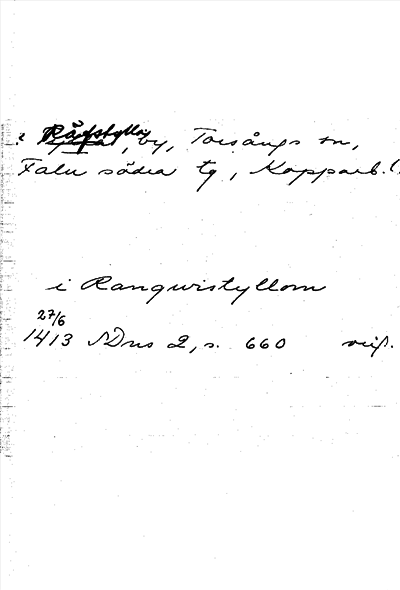 ? Rångstyllor, by, Torsångs sn,
Falu södra tg, Kopparb. l.
i Ranquistyllom
27/6
1413 SDns 2, s. 660